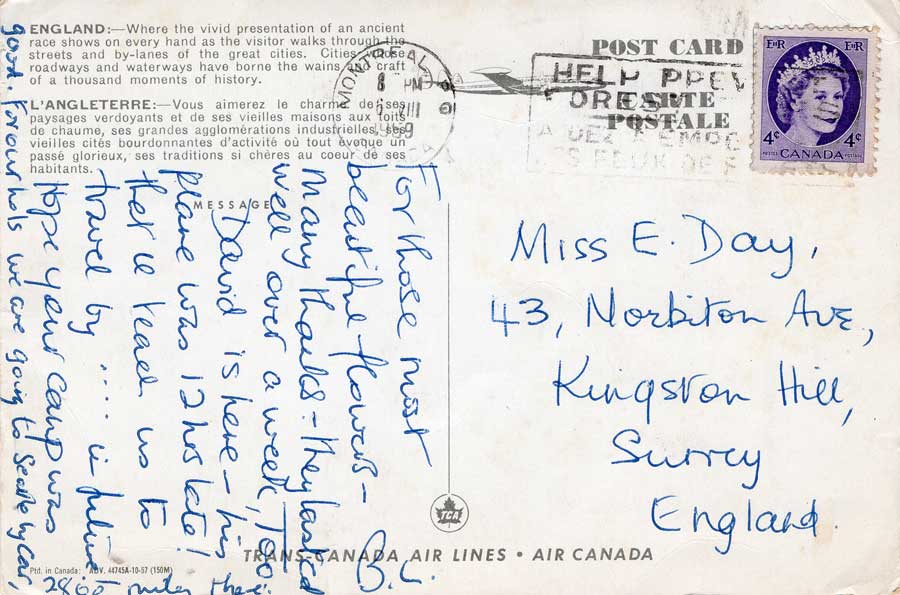 ENGLAND:—Where the vivid presentation of an ancient
race shows on every hand as the visitor walks through the
streets and by-lanes of the great cities. Cities whose
roadways and waterways have borne the wains and craft
of a thousand moments of history.
L'ANGLETERRE:—Vous aimerez le charme de ses
paysages verdoyants et de ses vieilles maisons aux toits
de chaume, ses grandes agglomérations industrielles, ses
vieilles cités bourdonnantes d'activité où tout évoque un
passé glorieux, ses traditions si chères au coeur de ses
habitants.
MESSAGE
For those most
beautiful flowers -
many thanks - they lasted
well over a week, Too
David is here - his
plane was 12 hrs late!
that'll teach us to
travel by ..... in future
Hope your camp was
good. Four hols we are going to Seattle by car,
2800 miles there.
B.L.
POST CARD
CARTE
POSTALE
MONTREAL
8 PM
III
1959
HELP PREV
FOREST
E II R
E II R
4¢
4¢
POSTES CANADA POSTAGE
Miss E. Day,
43, Norbiton Ave,
Kingston Hill,
Surrey
England.
TCA
TRANS-CANADA AIR LINES • AIR CANADA
Ptd. in Canada: ADV. 44745A-10-57 (150M)